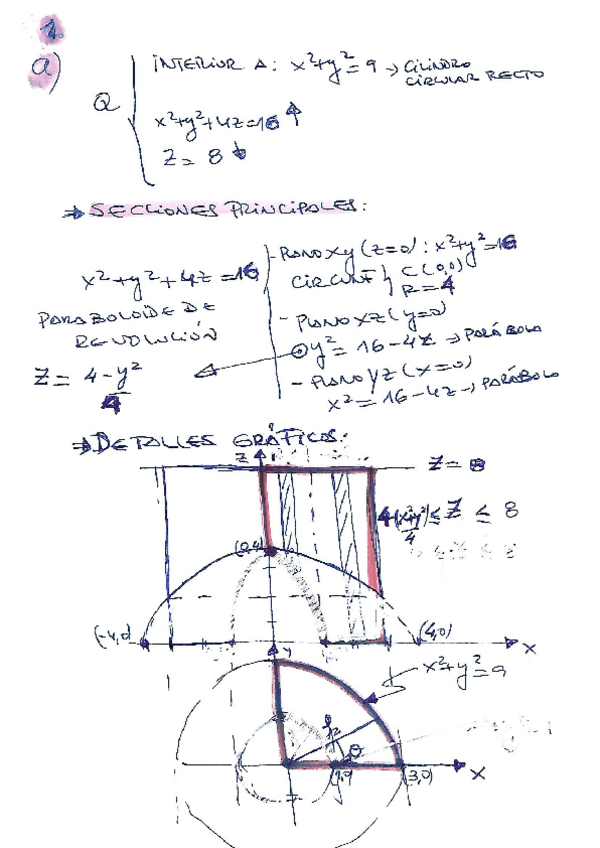 1.
a)
Q { INTERIOR A: x²+y²=9 → CILINDRO
CIRCULAR RECTO
x²+y²+4z=16 ↑
z= 8 ↓
⇒ SECCIONES PRINCIPALES:
x²+y²+4z=16
PARABOLOIDE DE
REVOLUCIÓN
z= 4-y²/4
- PLANO XY (z=0): x²+y²=16
CIRCUNF { C(0,0)
R=4
- PLANO XZ (y=0)
y²= 16-4z → PARÁBOLA
- PLANO YZ (x=0)
x²=16-4z → PARÁBOLA
⇒ DETALLES GRÁFICOS:
z
z=8
4-(x²+y²)/4 ≤ z ≤ 8
(0,4)
(-4,0)
(4,0)
x
y
x²+y²=9
θ
(3,0)
x